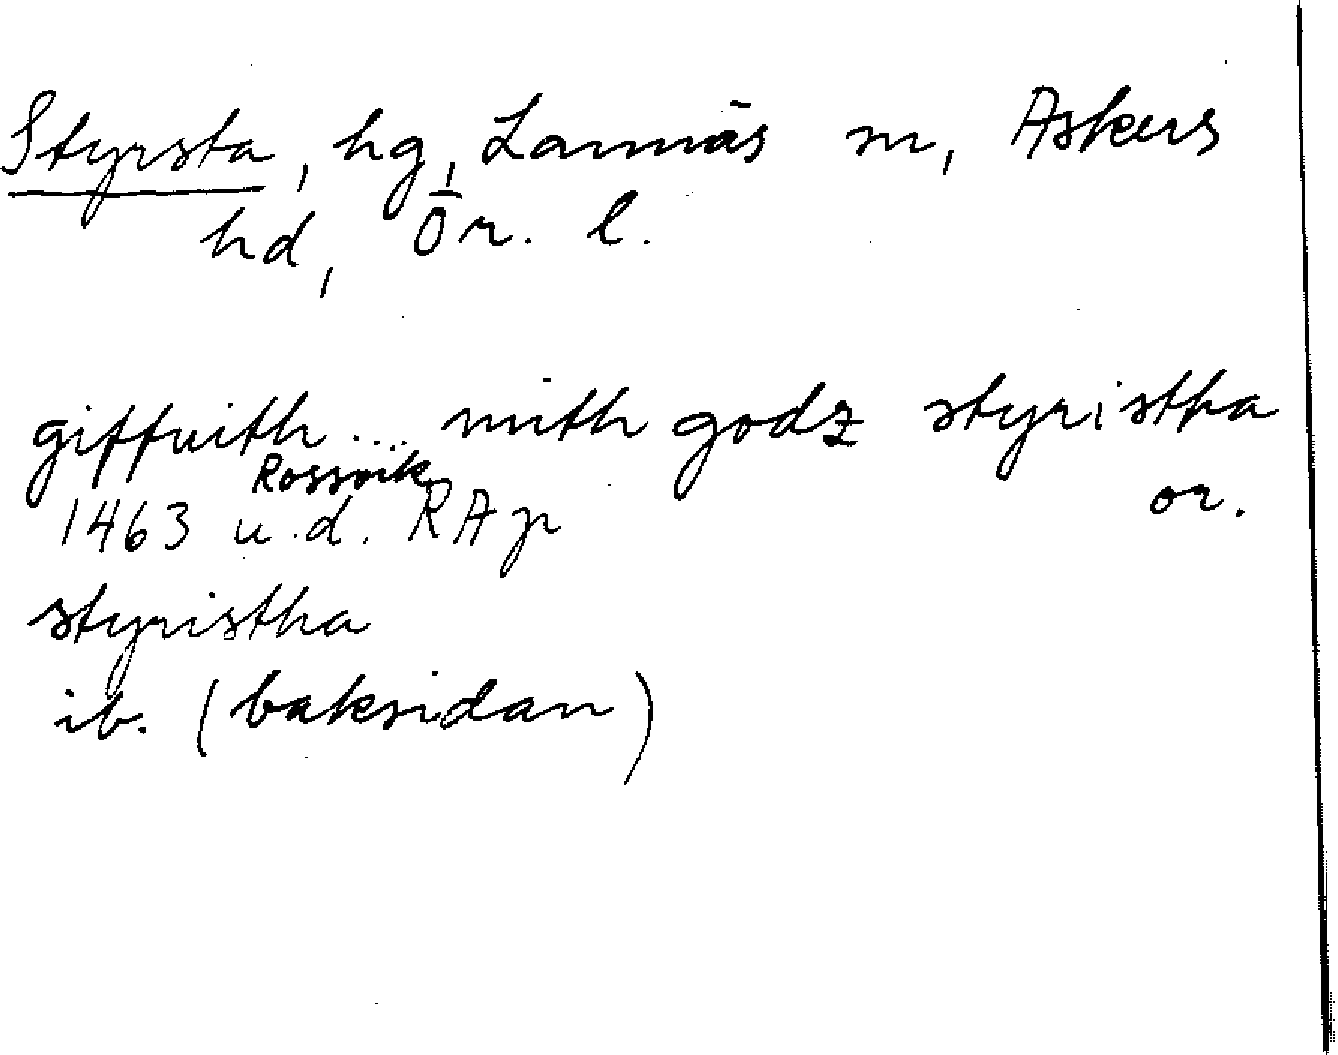 Styrsta, hg, Lannäs sn, Askers
hd, Ör. l.
giffuith ... mith godz styristha
or.
Rossvik
1463 u.d. RAp
styristha
ib. (baksidan)